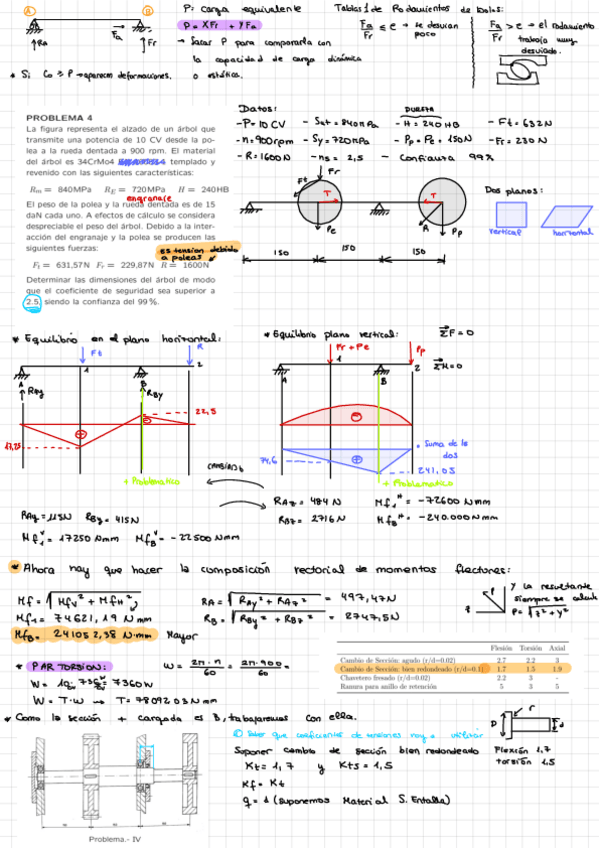 A
B
RA
Fa
Fr
P: carga equivalente
P = XFr + YFa
→ Sacar P para compararla con
la capacidad de carga dinámica
o estática.
* Si Co ≥ P → aparecen deformaciones.
Tablas 1 de Rodamientos de bolas:
Fa/Fr ≤ e → se desvían poco
Fa/Fr > e → el rodamiento trabaja muy desviado.
PROBLEMA 4
La figura representa el alzado de un árbol que
transmite una potencia de 10 CV desde la po-
lea a la rueda dentada a 900 rpm. El material
del árbol es 34CrMo4 templado y
revenido con las siguientes características:
Rm = 840MPa RE = 720MPa H = 240HB
engranaje
El peso de la polea y la rueda dentada es de 15
daN cada uno. A efectos de cálculo se considera
despreciable el peso del árbol. Debido a la inter-
acción del engranaje y la polea se producen las
siguientes fuerzas:
es tension debido
a poleas
Ft = 631,57N Fr = 229,87N R = 1600N
Determinar las dimensiones del árbol de modo
que el coeficiente de seguridad sea superior a
2.5, siendo la confianza del 99%.
Datos:
-P=10 CV
-n=900rpm
-R=1600N
-Sut=840MPa
-Sy=720MPa
-ns=2,5
DUREZA
-H=240HB
-Pp=Pe=150N
-Confianza 99%
-Ft=632N
-Fr=230N
Fr
Ft
T
T
Pe
R
Pp
150
150
150
Dos planos:
vertical
horizontal
* Equilibrio en el plano horizontal:
Ft
R
1
2
A
B
RAy
RBy
22,5
17,25
+ Problematico
RAy=115N RBy=415N
Mf1V=17250Nmm MfBV=-22500Nmm
* Equilibrio plano vertical:
ΣF=0
ΣM=0
Fr+Pe
Pp
1
2
A
B
Suma de los
dos
74,6
241,05
+ Problematico
CAMBIADO
RAz=484N Mf1H=-72600Nmm
RBz=2716N MfBH=-240.000Nmm
* Ahora hay que hacer la composición vectorial de momentos flectores:
Mf=√(Mfv²+MfH²)
Mf1=74621,19 N·mm
MfB=241052,38 N·mm Mayor
RA=√(RAy²+RAz²) = 497,47N
RB=√(RBy²+RBz²) = 2747,5N
Y la resultante
siempre se calcula
P=√(x²+y²)
* PAR TORSION:
W = 2π·n/60 = 2π·900/60 =
W = 10· 736 = 7360W
W = T·w → T = 78092,03Nmm
Flexión Torsión Axial
Cambio de Sección: agudo (r/d=0.02) 2.7 2.2 3
Cambio de Sección: bien redondeado (r/d=0.1) 1.7 1.5 1.9
Chavetero fresado (r/d=0.02) 2.2 3 -
Ranura para anillo de retención 5 3 5
* Como la sección + cargada es B, trabajaremos con ella.
① Saber que coeficientes de tensiones voy a utilizar
Suponer cambio de sección bien redondeado
Kt=1,7 y Kts=1,5
Kf=Kt
q=1 (suponemos Material S. Entalla)
r
D
d
Flexión 1,7
torsión 1,5
Problema.- IV